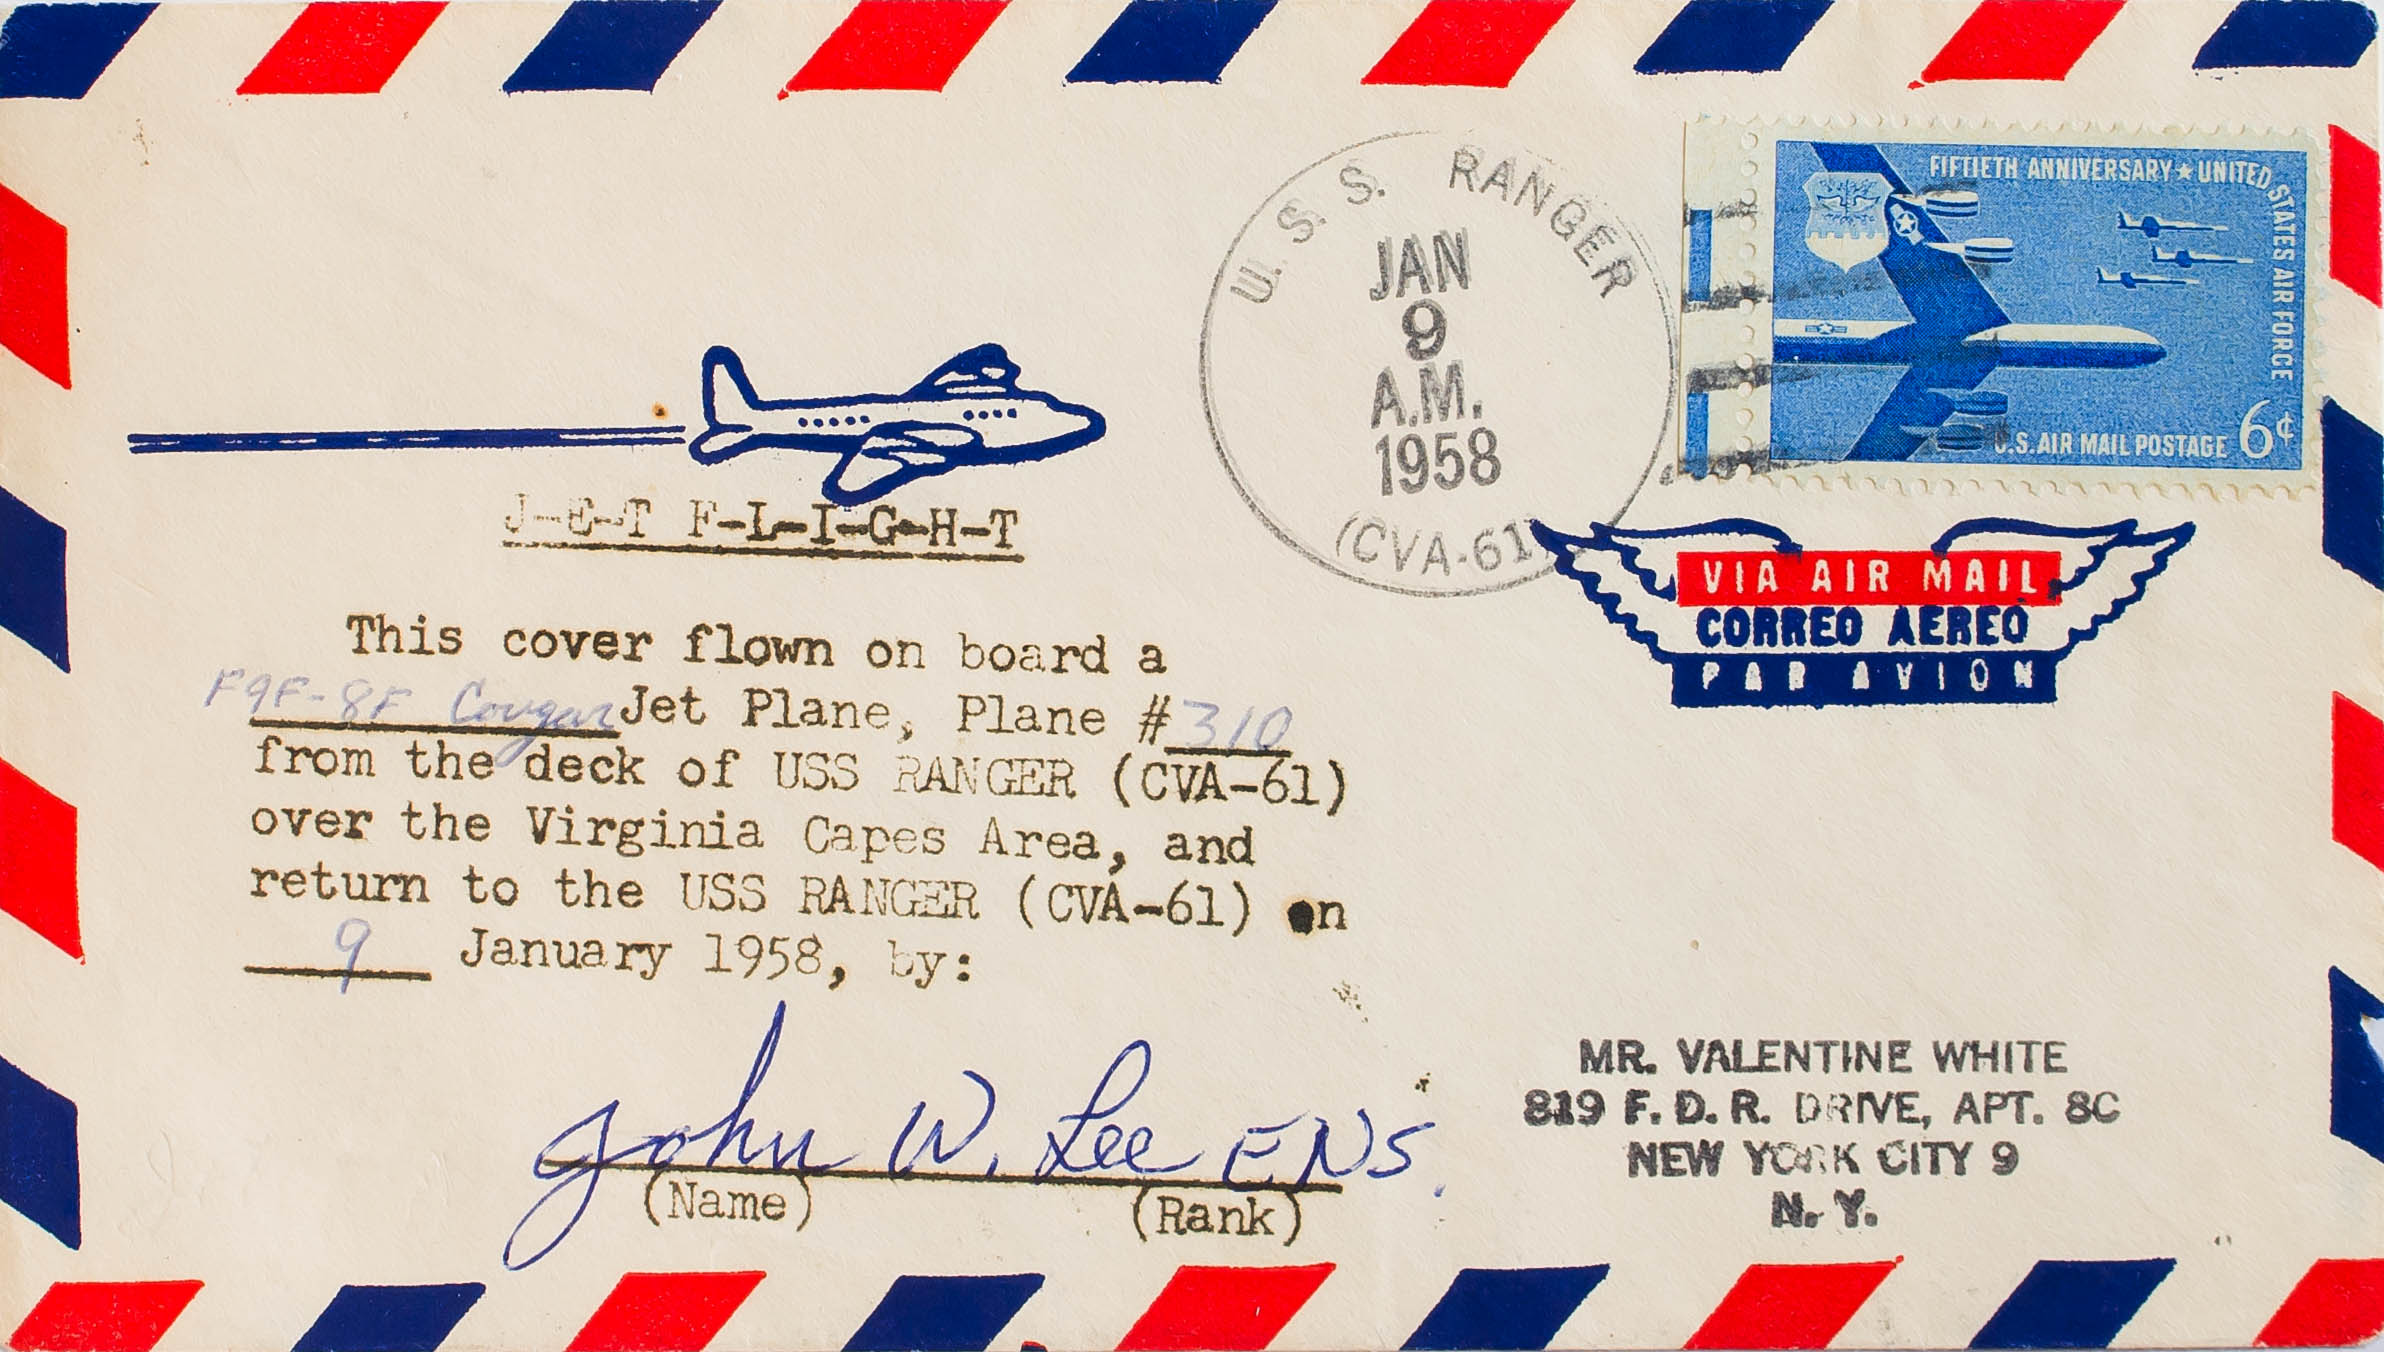 U.S.S. RANGER
JAN
9
A.M.
1958
(CVA-61)
FIFTIETH ANNIVERSARY★UNITED STATES AIR FORCE
U.S. AIR MAIL POSTAGE 6¢
VIA AIR MAIL
CORREO AEREO
PAR AVION
J-E-T F-L-I-G-H-T
This cover flown on board a
F9F-8F Cougar Jet Plane, Plane #310
from the deck of USS RANGER (CVA-61)
over the Virginia Capes Area, and
return to the USS RANGER (CVA-61) on
9 January 1958, by:
John W. Lee ENS.
(Name) (Rank)
MR. VALENTINE WHITE
819 F. D. R. DRIVE, APT. 8C
NEW YORK CITY 9
N. Y.